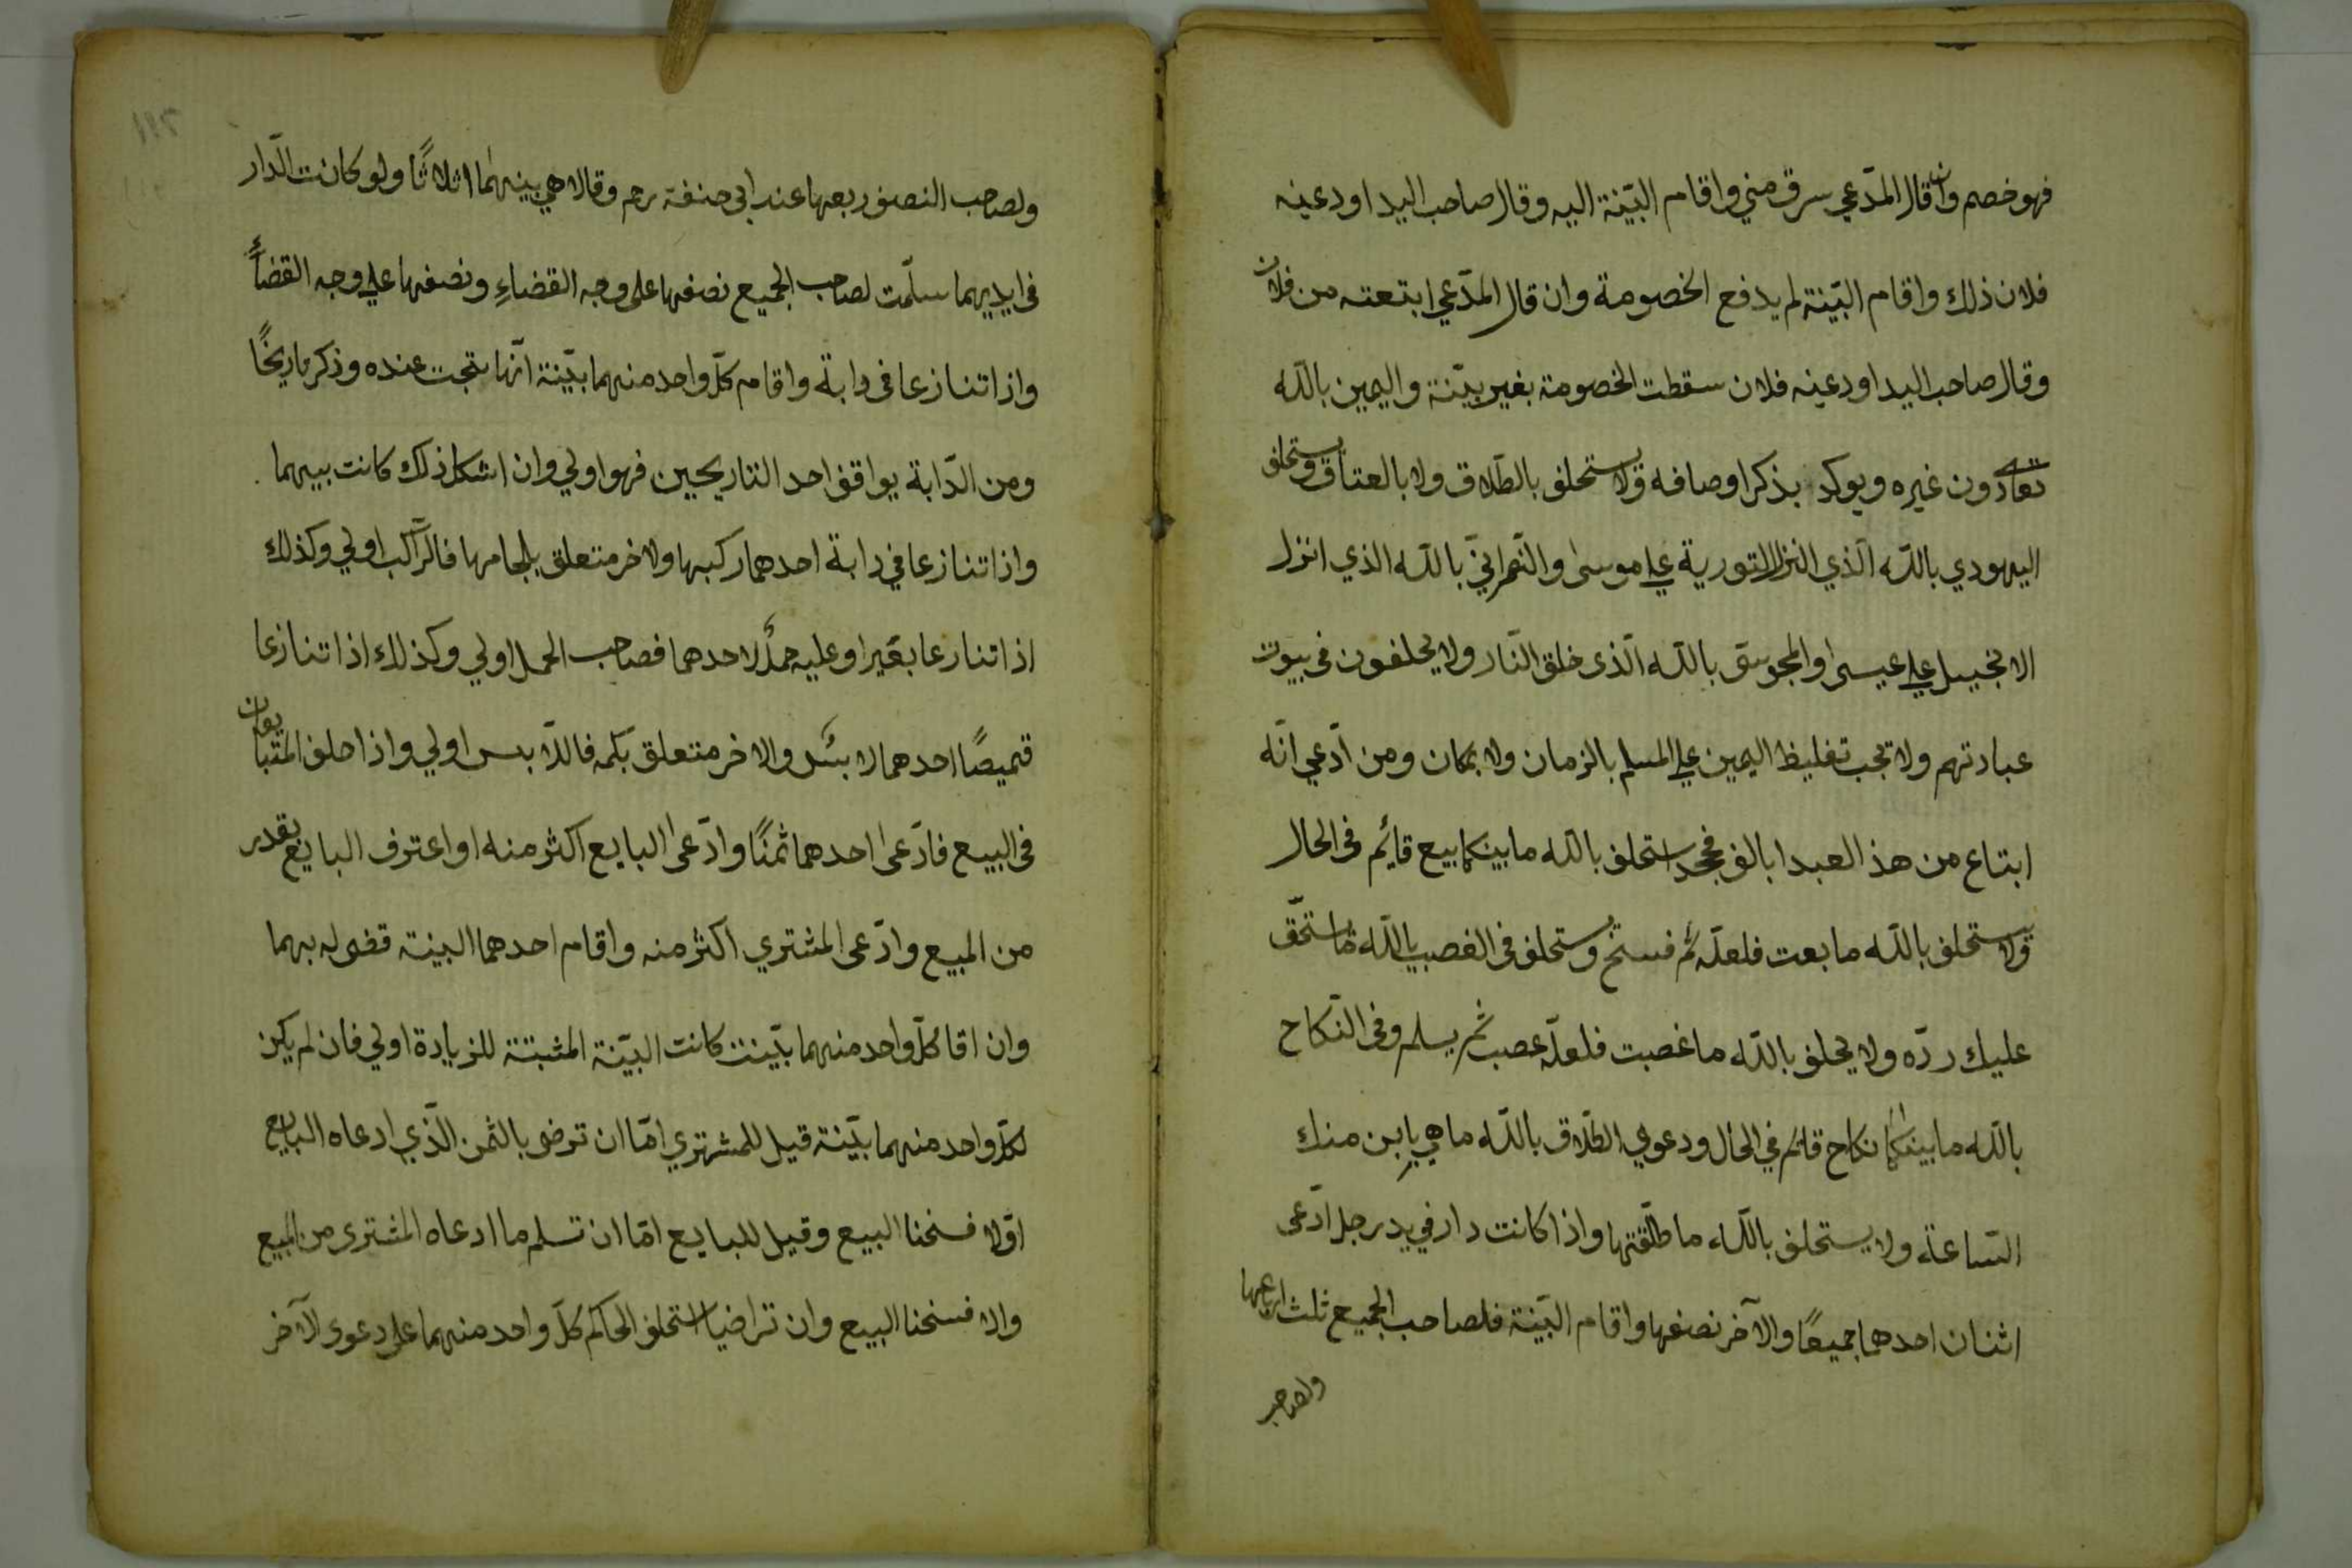 فهو خصم وان قال المدّعي سرق مني واقام البيّنة اليه وقال صاحب اليد اودعنيه
فلان ذلك واقام البيّنة لم يدفع الخصومة وان قال المدّعي ابتعته من فلان
وقال صاحب اليد اودعنيه فلان سقطت الخصومة بغير بيّنة واليمين بالله
تعالى دون غيره ويوكد بذكر اوصافه ولا يستحلف بالطّلاق ولا بالعتاق ويستحلف
اليهودي بالله الّذي انزل التورية علي موسى والنّصرانيّ بالله الذي انزل
الانجيل علي عيسى والمجوسيّ بالله الّذى خلق النّار ولا يحلفون فى بيوت
عبادتهم ولا تجب تغليظ اليمين علي المسلم بالزمان ولا بمكان ومن ادّعي انّه
ابتاع من هذ العبدا بالف فجحد استحلف بالله ما بينكما بيع قائم فى الحال
ولا يستحلف بالله ما بعت فلعلّه ثم فسخ ويستحلف فى الغصب بالله ما استحّق
عليك ردّه ولا يحلف بالله ما غصبت فلعلّه غصب ثم يسلم وفى النّكاح
بالله ما بينكما نكاح قائم في الحال ودعوي الطّلاق بالله ما هي باين منك
السّاعة ولا يستحلف بالله ما طلّقتها واذا كانت دار في يد رجل ادّعى
اثنان احدهما جميعًا والآخر نصفها واقام البيّنة فلصاحب الجميع ثلث ارباعها
ولصاحب
ولصاحب النصف ربعها عند ابى حنفة رحم وقالا هي بينهما اثلاثًا ولو كانت الّدار
فى ايديهما سلّمت لصاحب الجميع نصفها على وجه القضاءِ ونصفها علي وجه القضأً
واذا تنازعا فى دابة واقام كلّ واحد منهما بيّنة انّها نتجت عنده وذكر تاريخًا
ومن الدّابة يوافق احد التاريخين فهو اولي وان اشكل ذلك كانت بينهما
واذا تنازعا في دابة احدهما ركبها والاخر متعلق بلجامها فالرّاكب اولي وكذلك
اذا تنازعا بعيرا وعليه حملٌ لاحدهما فصاحب الحمل اولي وكذلك اذا تنازعا
قميصًا احدهما لابسٌ والاخر متعلق بكمه فاللّابس اولي واذا حلف المتبايعان
فى البيع فادّعى احدهما ثمنًا وادّعى البايع اكثر منه او اعترف البايع بقدر
من المبيع وادّعى المشتري اكثر منه واقام احدهما البينة قضى له بهما
وان اقا كلّ واحد منهما بيّنت كانت البيّنة المثبتة للزيادة اولي فان لم يكن
لكلّ واحد منهما بيّنة قيل للمشتري امّا ان ترض بالثمن الّذي ادعاه البايع
اوّلا فسخنا البيع وقيل للبايع امّا ان تسلم ما ادعاه المشترى من المبيع
والا فسخنا البيع وان تراضيا استحلف الحاكم كلّ واحد منهما على دعوى الآخر